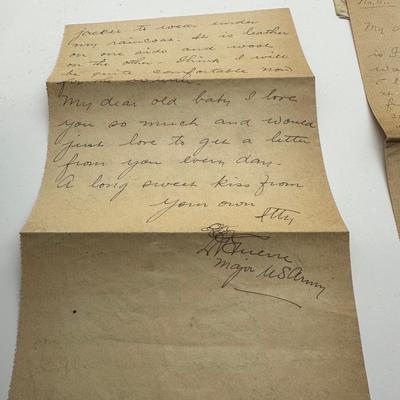 jacket to wear under
my raincoat. It is leather
on one side and wool
on the other. Think I will
be quite comfortable now
for the
My dear old baby I love
you so much and would
just love to get a letter
from you every day.
A long sweet kiss from
your own
Major US Army
My d
is I